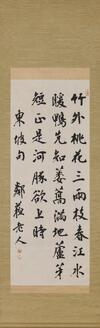 竹外桃花三兩枝春江水
暖鴨先知蔞蒿滿地蘆芽
短正是河豚欲上時
東坡句 鄰蘇老人